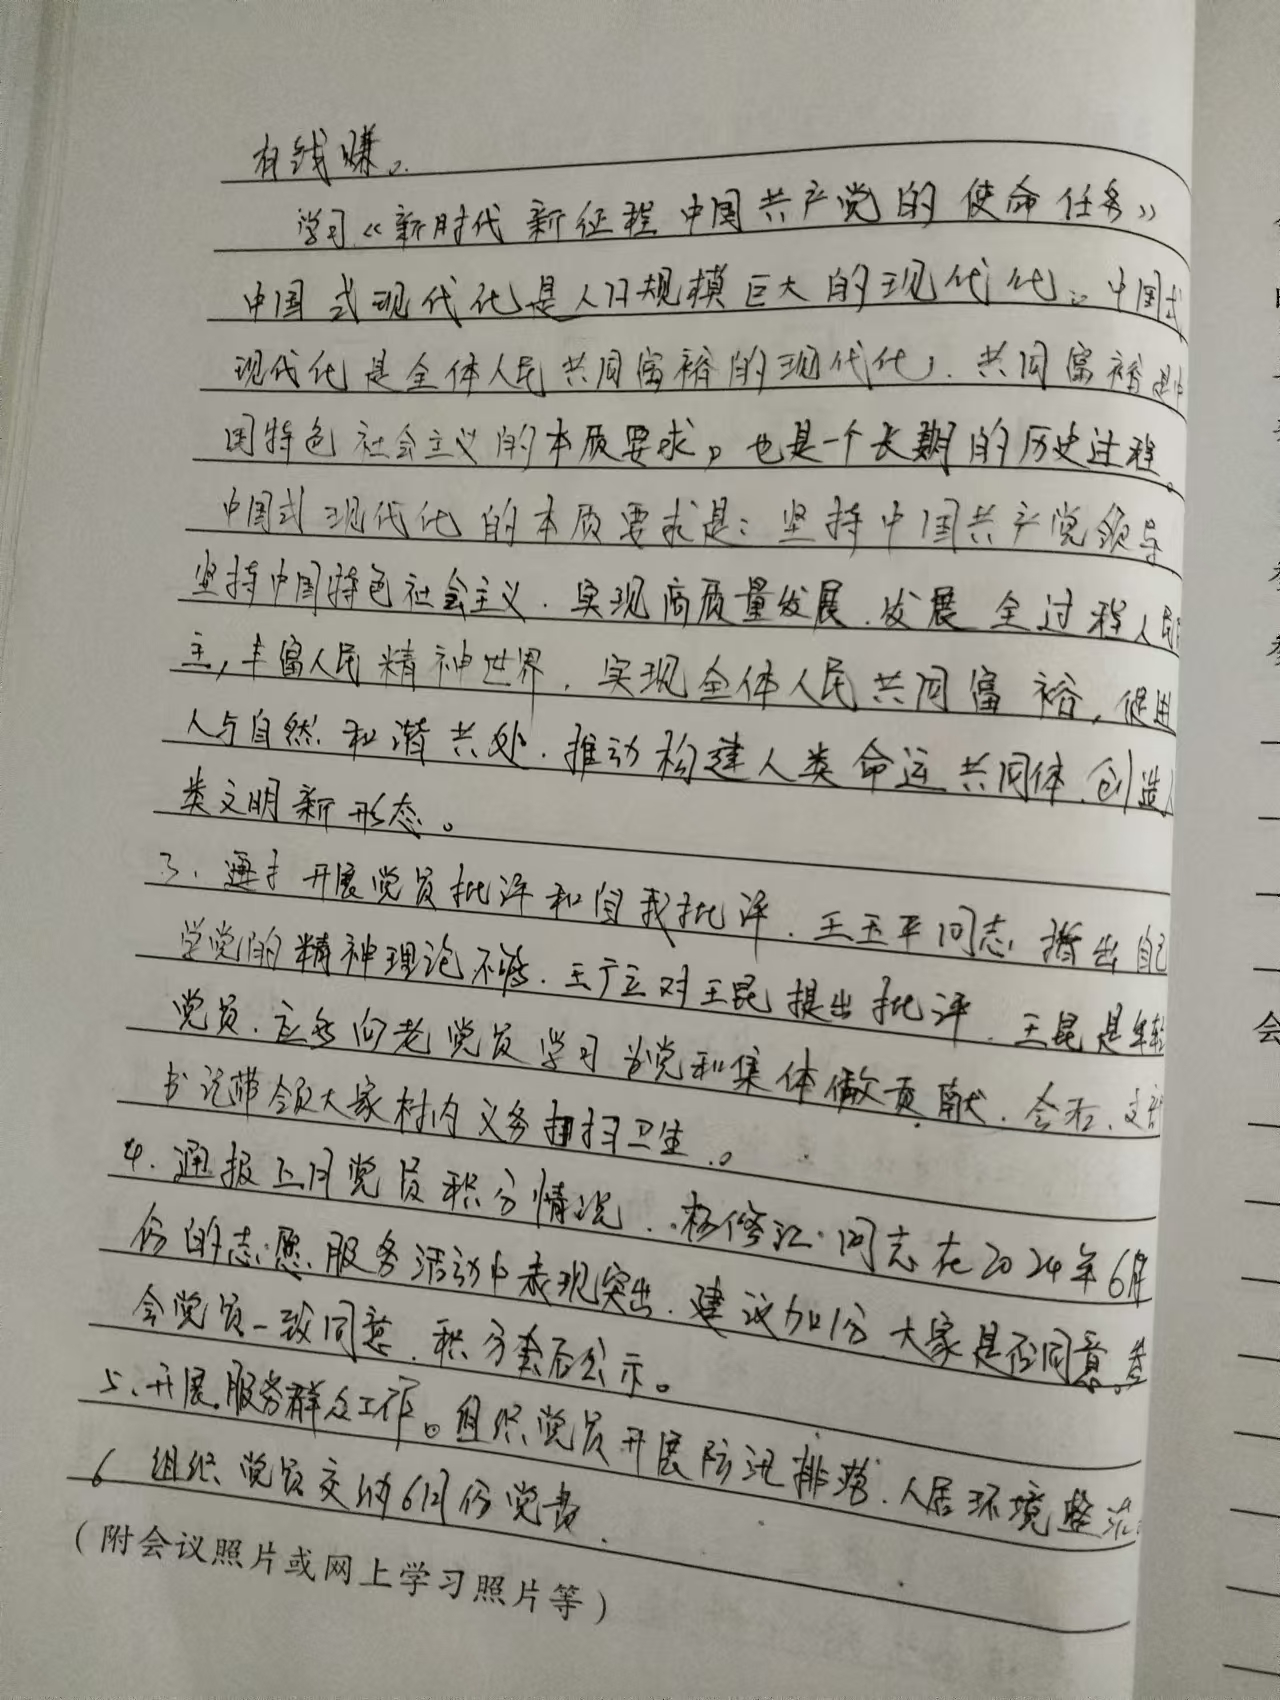 有钱赚。
学习《新时代新征程中国共产党的使命任务》
中国式现代化是人口规模巨大的现代化。中国式
现代化是全体人民共同富裕的现代化,共同富裕是中
国特色社会主义的本质要求,也是一个长期的历史过程。
中国式现代化的本质要求是:坚持中国共产党领导
坚持中国特色社会主义.实现高质量发展.发展全过程人民民
主,丰富人民精神世界.实现全体人民共同富裕,促进
人与自然和谐共处.推动构建人类命运共同体.创造人
类文明新形态。
3.通过开展党员批评和自我批评.王玉平同志指出自己
学党的精神理论不够.王广立对王昆提出批评.王昆是年轻
党员.应多向老党员学习为党和集体做贡献.会后.支部
书记带领大家村内义务打扫卫生。
4.通报上月党员积分情况.杨修江同志在2024年6月
份的志愿服务活动中表现突出.建议加1分大家是否同意。参
会党员一致同意.积分表后公示。
5.开展服务群众工作。组织党员开展防汛排涝.人居环境整治
6 组织党员交纳6月份党费.
(附会议照片或网上学习照片等)
会